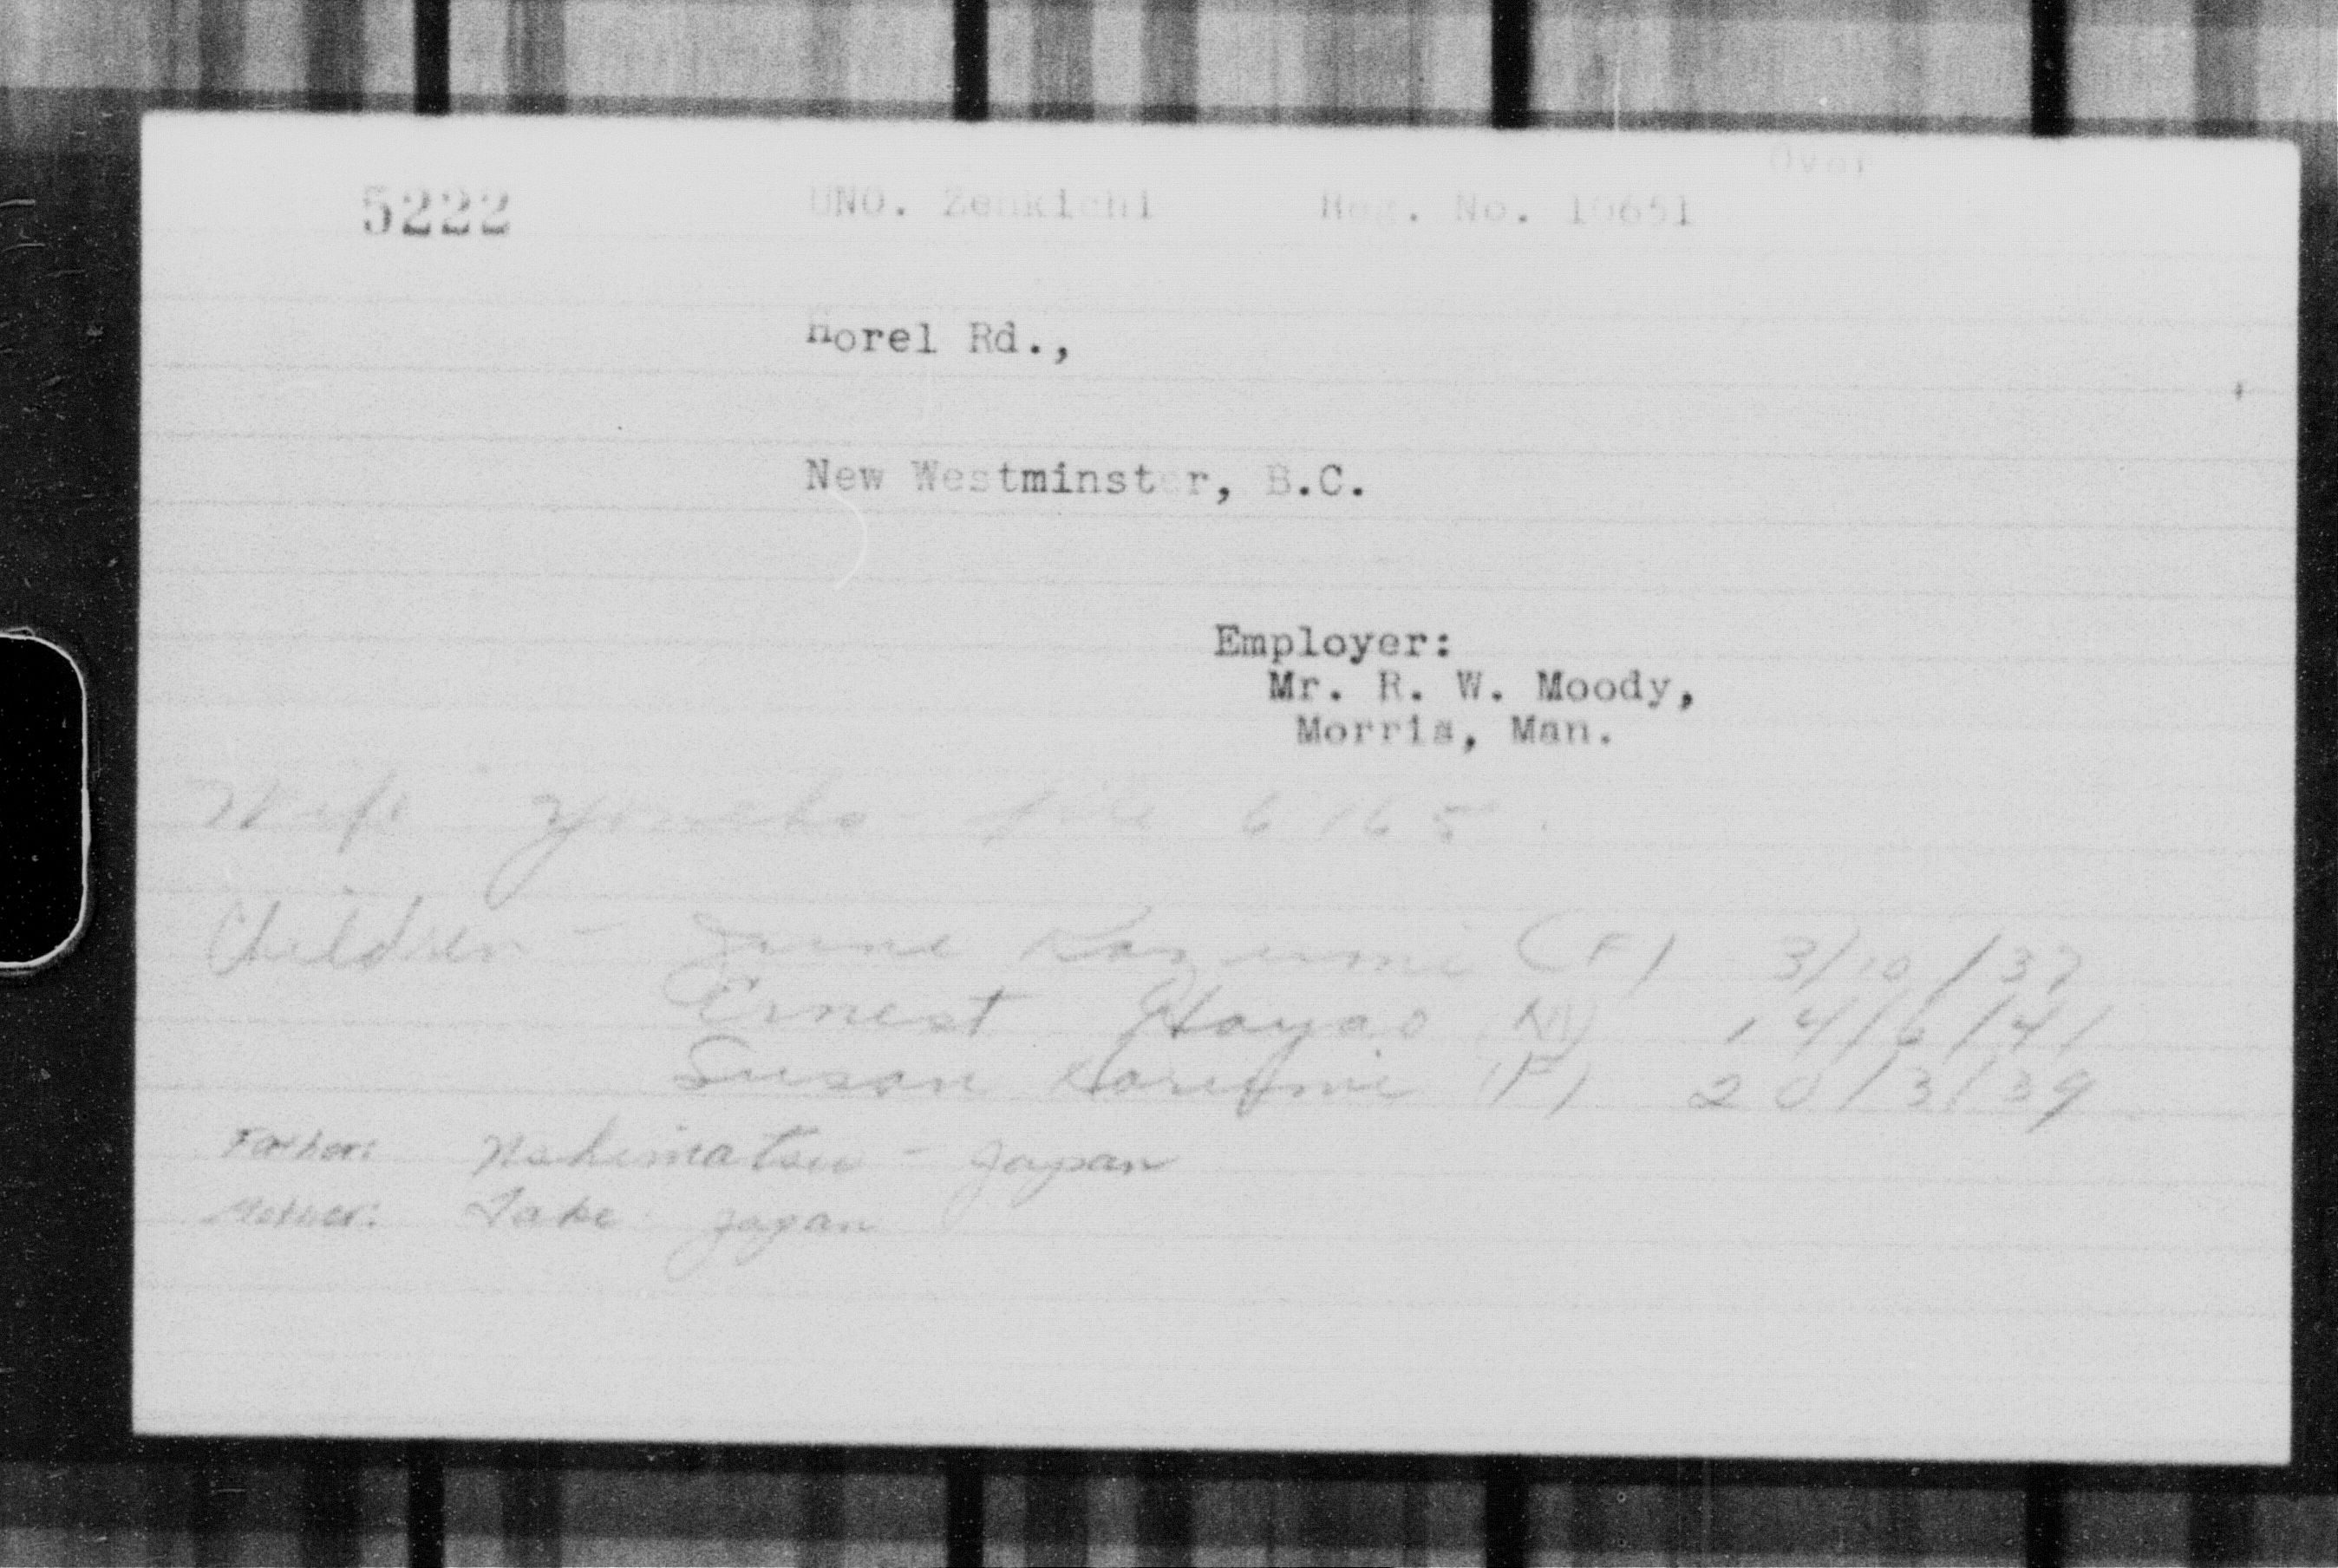 Over
5222 UNO. Zenkichi Reg. No. 10651
Horel Rd.,
New Westminster, B.C.
Employer:
Mr. R. W. Moody,
Morris, Man.
Wife File 6165
Children - Kazumi (F) 3/10/37
Ernest Hayao (M) 14/6/41
Susan (F) 20/3/39
Father: - Japan
Mother: Take Japan